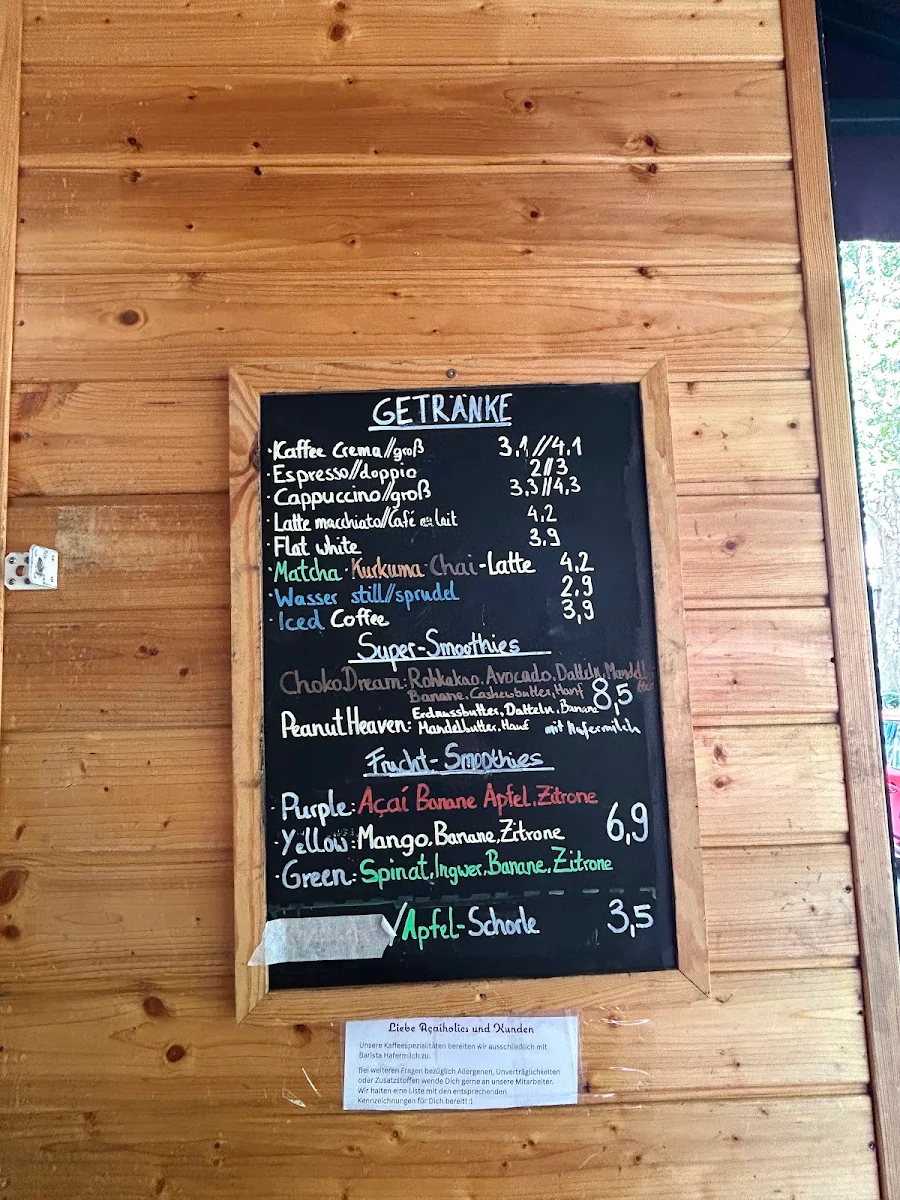 GETRÄNKE
·Kaffee Crema//groß 3,1//4,1
·Espresso//doppio 2//3
·Cappuccino//groß 3,3//4,3
·Latte macchiato//Café au lait 4,2
·Flat white 3,9
·Matcha·Kurkuma·Chai-Latte 4,2
·Wasser still//sprudel 2,9
·Iced Coffee 3,9
Super-Smoothies
Choko Dream: Rohkakao, Avocado, Datteln, Mandel
Banane, Cashewbutter, Hanf 8,5
Peanut Heaven: Erdnussbutter, Datteln, Banane
Mandelbutter, Hanf mit Hafermilch
Frucht-Smoothies
·Purple: Açaí Banane Apfel, Zitrone
·Yellow: Mango, Banane, Zitrone 6,9
·Green: Spinat, Ingwer, Banane, Zitrone
/Apfel-Schorle 3,5
Liebe Açaiholics und Kunden
Unsere Kaffeespezialitäten bereiten wir ausschließlich mit
Barista Hafermilch zu.
Bei weiteren Fragen bezüglich Allergenen, Unverträglichkeiten
oder Zusatzstoffen wende Dich gerne an unsere Mitarbeiter.
Wir halten eine Liste mit den entsprechenden
Kennzeichnungen für Dich bereit! :)